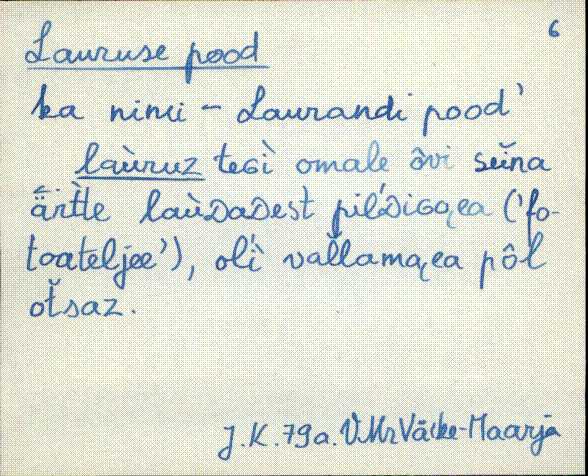 6
Lauruse pood
ka nimi - Laurandi pood'
laùruz tegì omale ôvi seĭna
ärt̀le laùDaDest pil'DiGa̭ea ('fo-
toateljee'), olì vallama̭ea pôl
ot̆saz.
J.K. 79a. V.Mr Väike-Maarja